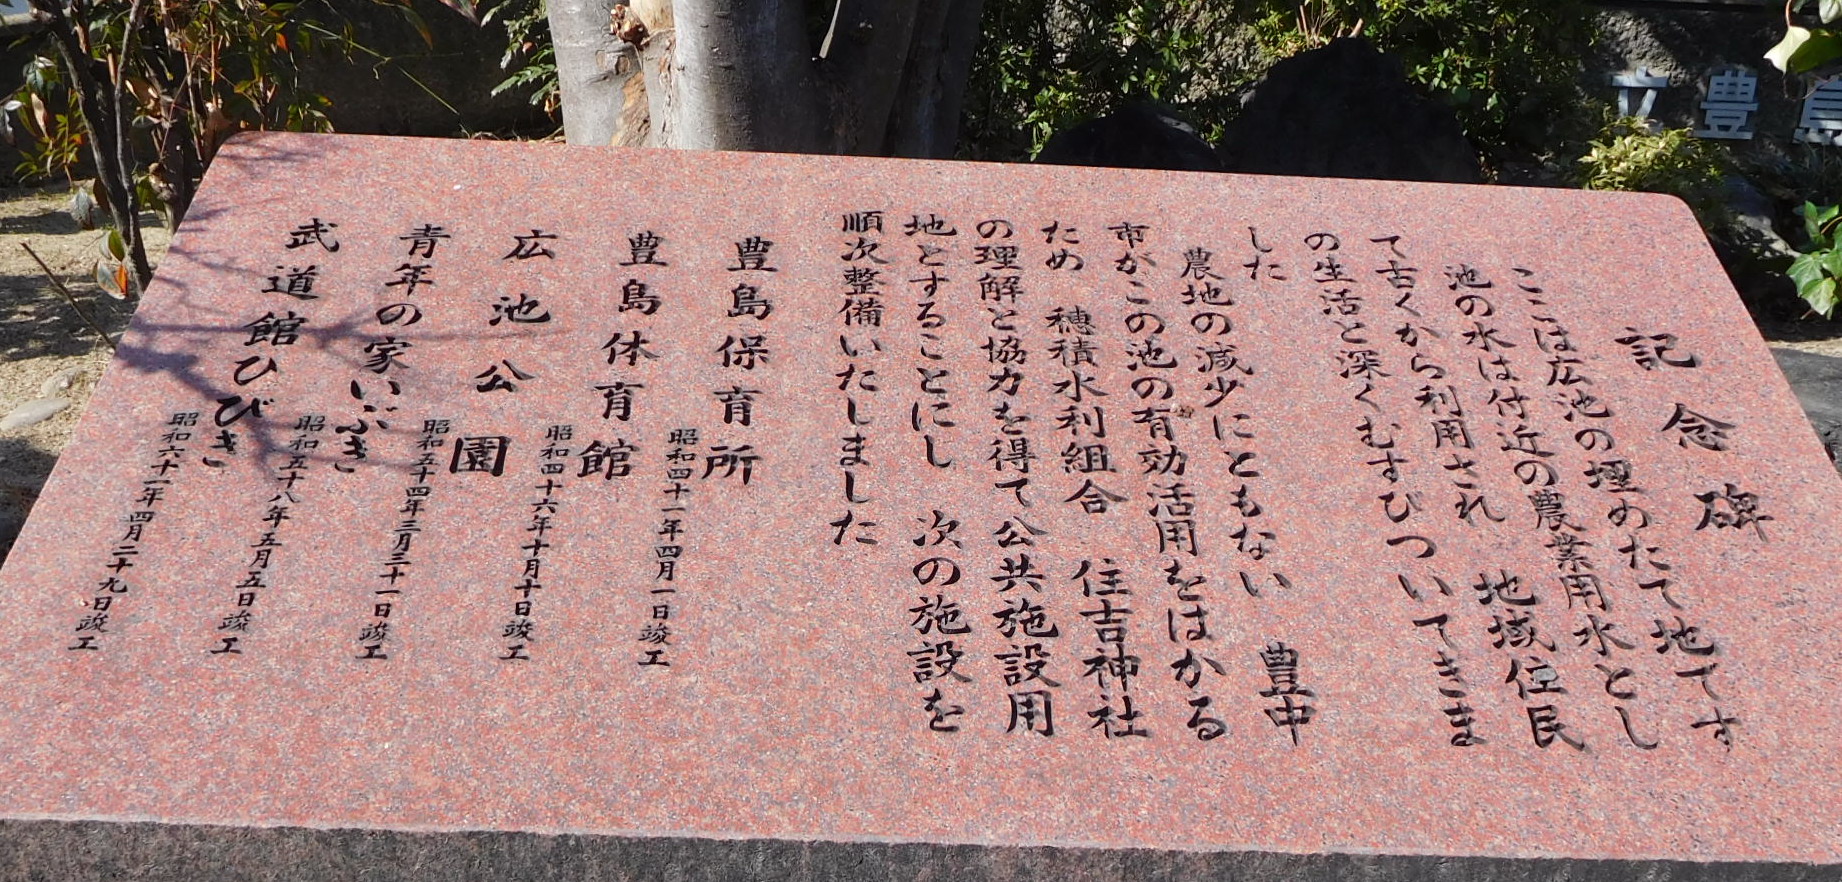 記念碑
ここは広池の埋めたて地です
池の水は付近の農業用水とし
て古くから利用され 地域住民
の生活と深くむすびついてきま
した
農地の減少にともない 豊中
市がこの池の有効活用をはかる
ため 穂積水利組合 住吉神社
の理解と協力を得て公共施設用
地とすることにし 次の施設を
順次整備いたしました
豊島保育所
昭和四十一年四月一日竣工
豊島体育館
昭和四十六年十月十日竣工
広池公園
昭和五十四年三月三十一日竣工
青年の家いぶき
昭和五十八年五月五日竣工
武道館ひびき
昭和六十一年四月二十九日竣工
立豊島